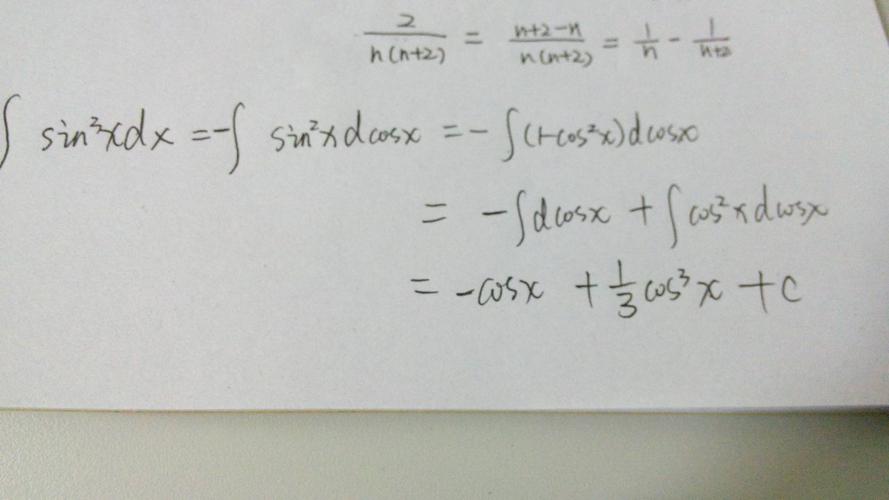 2/(n(n+2)) = (n+2-n)/(n(n+2)) = 1/n - 1/(n+2)
∫ sin³xdx = -∫ sin²x dcosx = -∫(1-cos²x)dcosx
= -∫dcosx + ∫cos²x dcosx
= -cosx + 1/3 cos³x + C